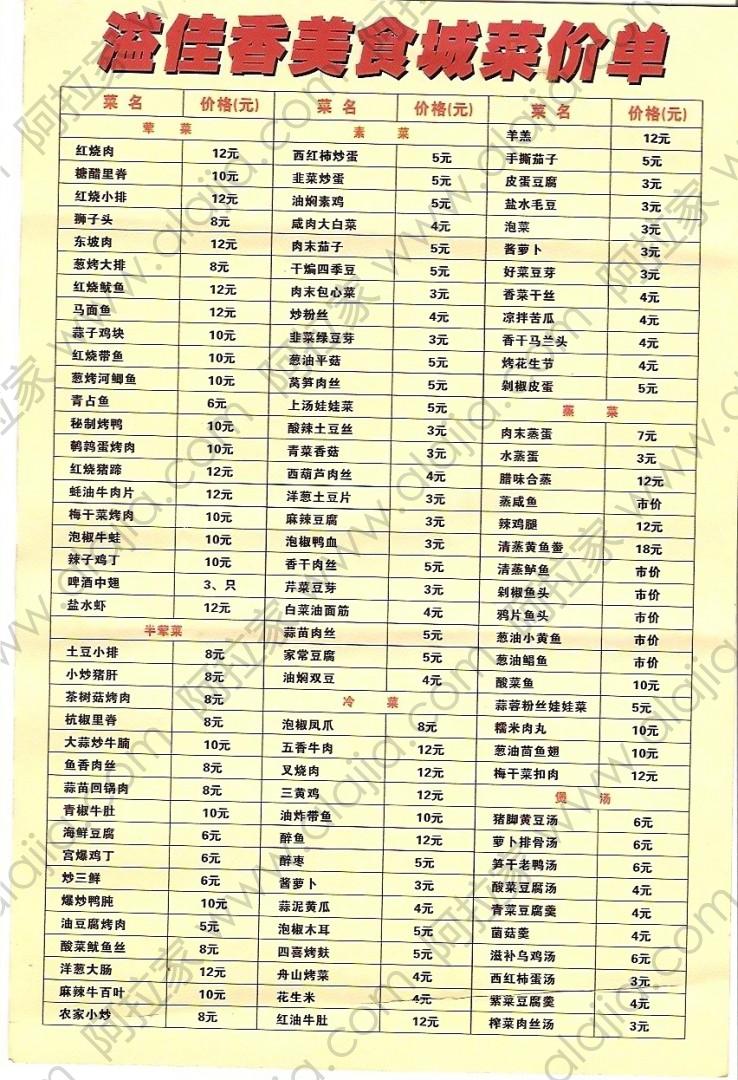 溢佳香美食城菜价单
菜 名 价格(元)
荤 菜
红烧肉 12元
糖醋里脊 10元
红烧小排 12元
狮子头 8元
东坡肉 12元
葱烤大排 8元
红烧鱿鱼 12元
马面鱼 12元
蒜子鸡块 10元
红烧带鱼 10元
葱烤河鲫鱼 10元
青占鱼 6元
秘制烤鸭 10元
鹌鹑蛋烤肉 10元
红烧猪蹄 12元
蚝油牛肉片 12元
梅干菜烤肉 10元
泡椒牛蛙 10元
辣子鸡丁 10元
啤酒中翅 3、只
盐水虾 12元
半荤菜
土豆小排 8元
小炒猪肝 8元
茶树菇烤肉 8元
杭椒里脊 8元
大蒜炒牛腩 10元
鱼香肉丝 8元
蒜苗回锅肉 8元
青椒牛肚 10元
海鲜豆腐 6元
宫爆鸡丁 6元
炒三鲜 6元
爆炒鸭肫 10元
油豆腐烤肉 5元
酸菜鱿鱼丝 8元
洋葱大肠 12元
麻辣牛百叶 10元
农家小炒 8元
菜 名 价格(元)
素 菜
西红柿炒蛋 5元
韭菜炒蛋 5元
油焖素鸡 5元
咸肉大白菜 4元
肉末茄子 5元
干煸四季豆 5元
肉末包心菜 3元
炒粉丝 4元
韭菜绿豆芽 3元
葱油平菇 5元
莴笋肉丝 5元
上汤娃娃菜 5元
酸辣土豆丝 3元
青菜香菇 3元
西葫芦肉丝 4元
洋葱土豆片 3元
麻辣豆腐 3元
泡椒鸭血 3元
香干肉丝 5元
芹菜豆芽 3元
白菜油面筋 4元
蒜苗肉丝 5元
家常豆腐 5元
油焖双豆 4元
冷 菜
泡椒凤爪 8元
五香牛肉 12元
叉烧肉 12元
三黄鸡 12元
油炸带鱼 10元
醉鱼 12元
醉枣 5元
酱萝卜 3元
蒜泥黄瓜 4元
泡椒木耳 5元
四喜烤麸 5元
舟山烤菜 4元
花生米 4元
红油牛肚 12元
菜 名 价格(元)
羊羔 12元
手撕茄子 5元
皮蛋豆腐 3元
盐水毛豆 3元
泡菜 3元
酱萝卜 3元
好菜豆芽 3元
香菜干丝 4元
凉拌苦瓜 4元
香干马兰头 4元
烤花生节 4元
剁椒皮蛋 5元
蒸 菜
肉末蒸蛋 7元
水蒸蛋 3元
腊味合蒸 12元
蒸咸鱼 市价
辣鸡腿 12元
清蒸黄鱼鲞 18元
清蒸鲈鱼 市价
剁椒鱼头 市价
鸦片鱼头 市价
葱油小黄鱼 市价
葱油鲳鱼 市价
酸菜鱼 10元
蒜蓉粉丝娃娃菜 5元
糯米肉丸 10元
葱油苗鱼翅 10元
梅干菜扣肉 12元
煲 汤
猪脚黄豆汤 6元
萝卜排骨汤 6元
笋干老鸭汤 6元
酸菜豆腐汤 4元
青菜豆腐羹 4元
菌菇羹 4元
滋补乌鸡汤 6元
西红柿蛋汤 3元
紫菜豆腐羹 4元
榨菜肉丝汤 3元
阿拉家 www.alajia.com